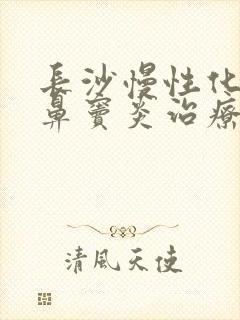 長沙慢性化
鼻竇炎治療
清風天使